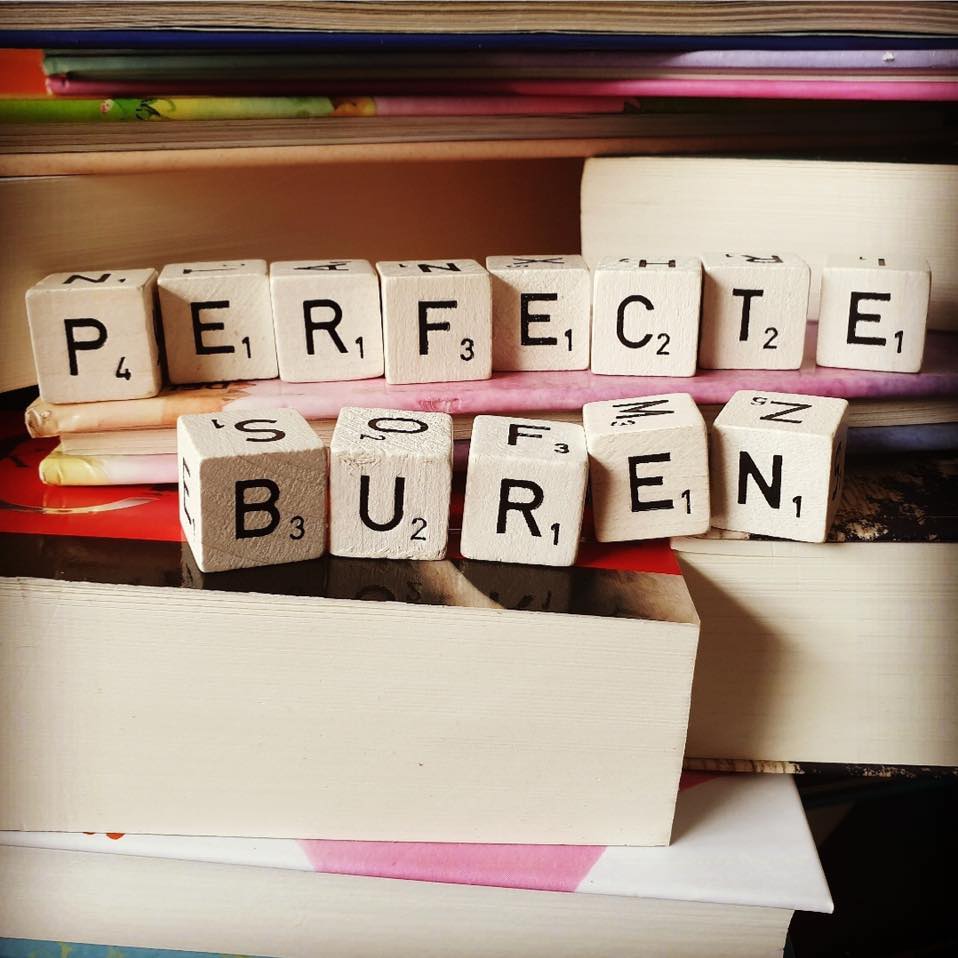 PERFECTE
BUREN